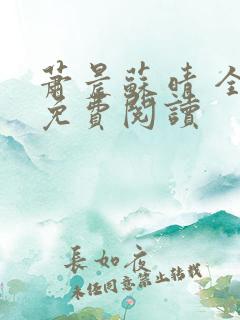 蕭晨蘇晴 全
免費閱讀
長如夜
未經同意禁止轉載